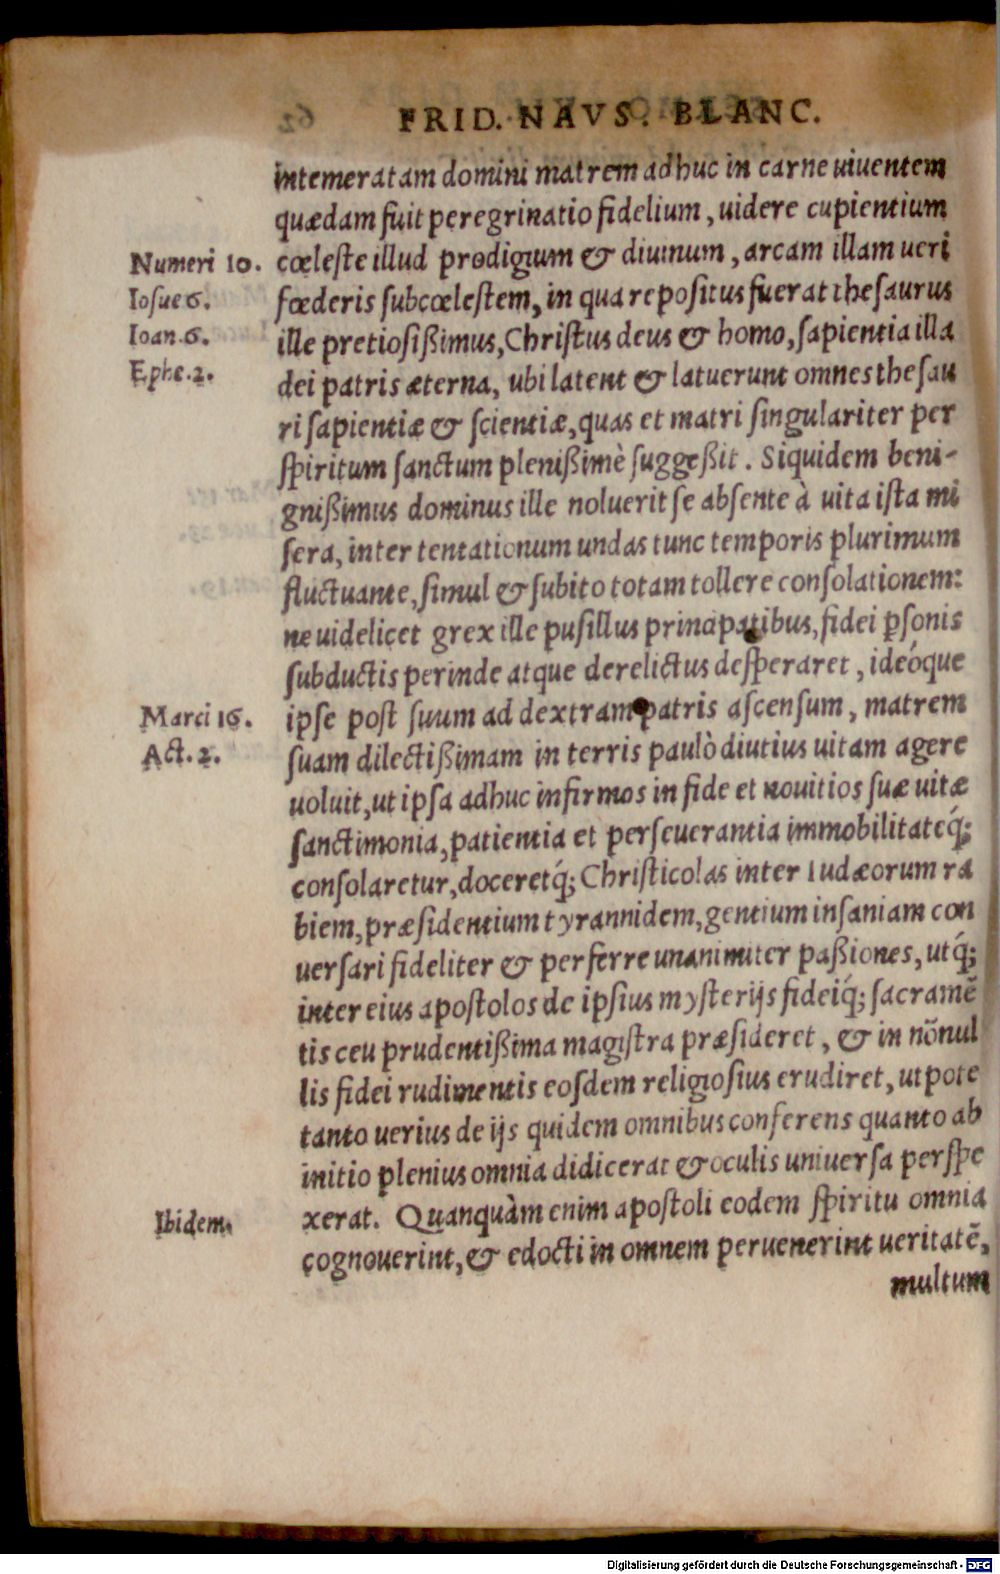 FRID. NAVS. BLANC.
intemeratam domini matrem adhuc in carne uiuentem
quædam fuit peregrinatio fidelium, uidere cupientium
Numeri 10. cœleste illud prodigium & diuinum, arcam illam ueri
Iosue 6. fœderis subcœlestem, in qua repositus fuerat thesaurus
Ioan. 6. ille pretiosißimus, Christus deus & homo, sapientia illa
Ephe. 2. dei patris æterna, ubi latent & latuerunt omnes thesau
ri sapientiæ & scientiæ, quas et matri singulariter per
spiritum sanctum plenißimè suggeßit. Siquidem beni-
gnißimus dominus ille noluerit se absente à uita ista mi
sera, inter tentationum undas tunc temporis plurimum
fluctuante, simul & subito totam tollere consolationem:
ne uidelicet grex ille pusillus principatibus, fidei ꝑsonis
subductis perinde atque derelictus desperaret, ideóque
Marci 16. ipse post suum ad dextram patris ascensum, matrem
Act. 2. suam dilectißimam in terris paulò diutius uitam agere
uoluit, ut ipsa adhuc infirmos in fide et nouitios suæ uitæ
sanctimonia, patientia et perseuerantia immobilitateq́;
consolaretur, doceretq́; Christicolas inter Iudæorum ra
biem, præsidentium tyrannidem, gentium insaniam con
uersari fideliter & perferre unanimiter paßiones, utq́;
inter eius apostolos de ipsius mysterijs fideiq́; sacramẽ
tis ceu prudentißima magistra præsideret, & in nõnul
lis fidei rudimentis eosdem religiosius erudiret, utpote
tanto uerius de ijs quidem omnibus conferens quanto ab
initio plenius omnia didicerat & oculis uniuersa perspe
Ibidem. xerat. Quanquàm enim apostoli eodem spiritu omnia
cognouerint, & edocti in omnem peruenerint ueritatẽ,
multum
Digitalisierung gefördert durch die Deutsche Forschungsgemeinschaft - DFG